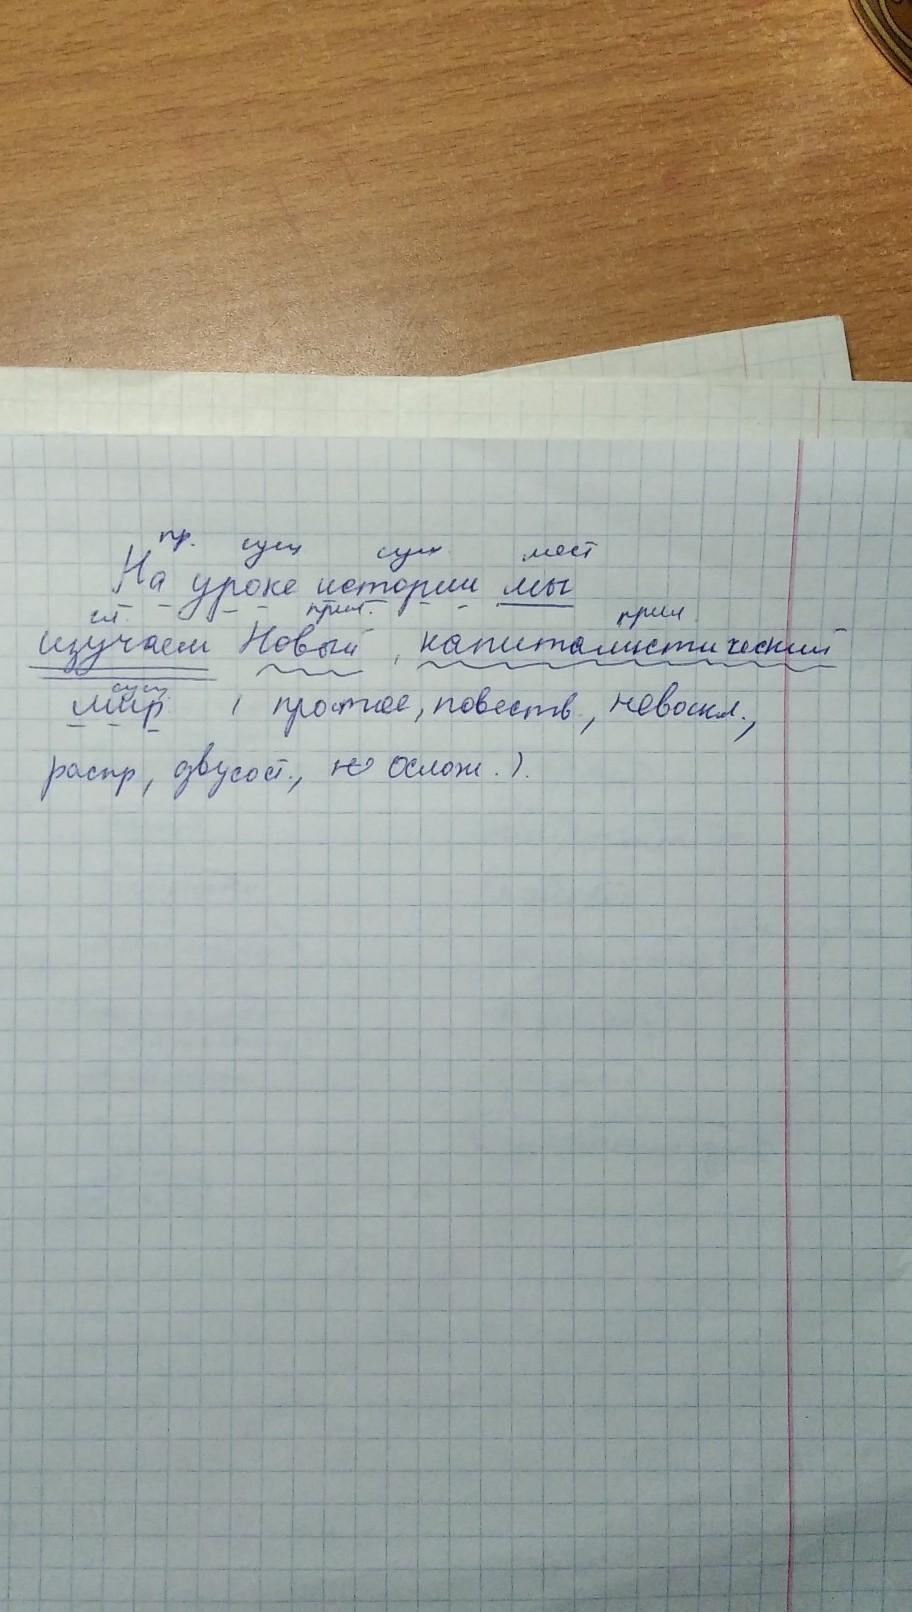 пр. сущ сущ. мест
На уроке истории мы
гл. прил. прил
изучаем Новый, капиталистический
сущ
мир (простое, повеств., невоскл.,
распр, двусост., не ослож.).